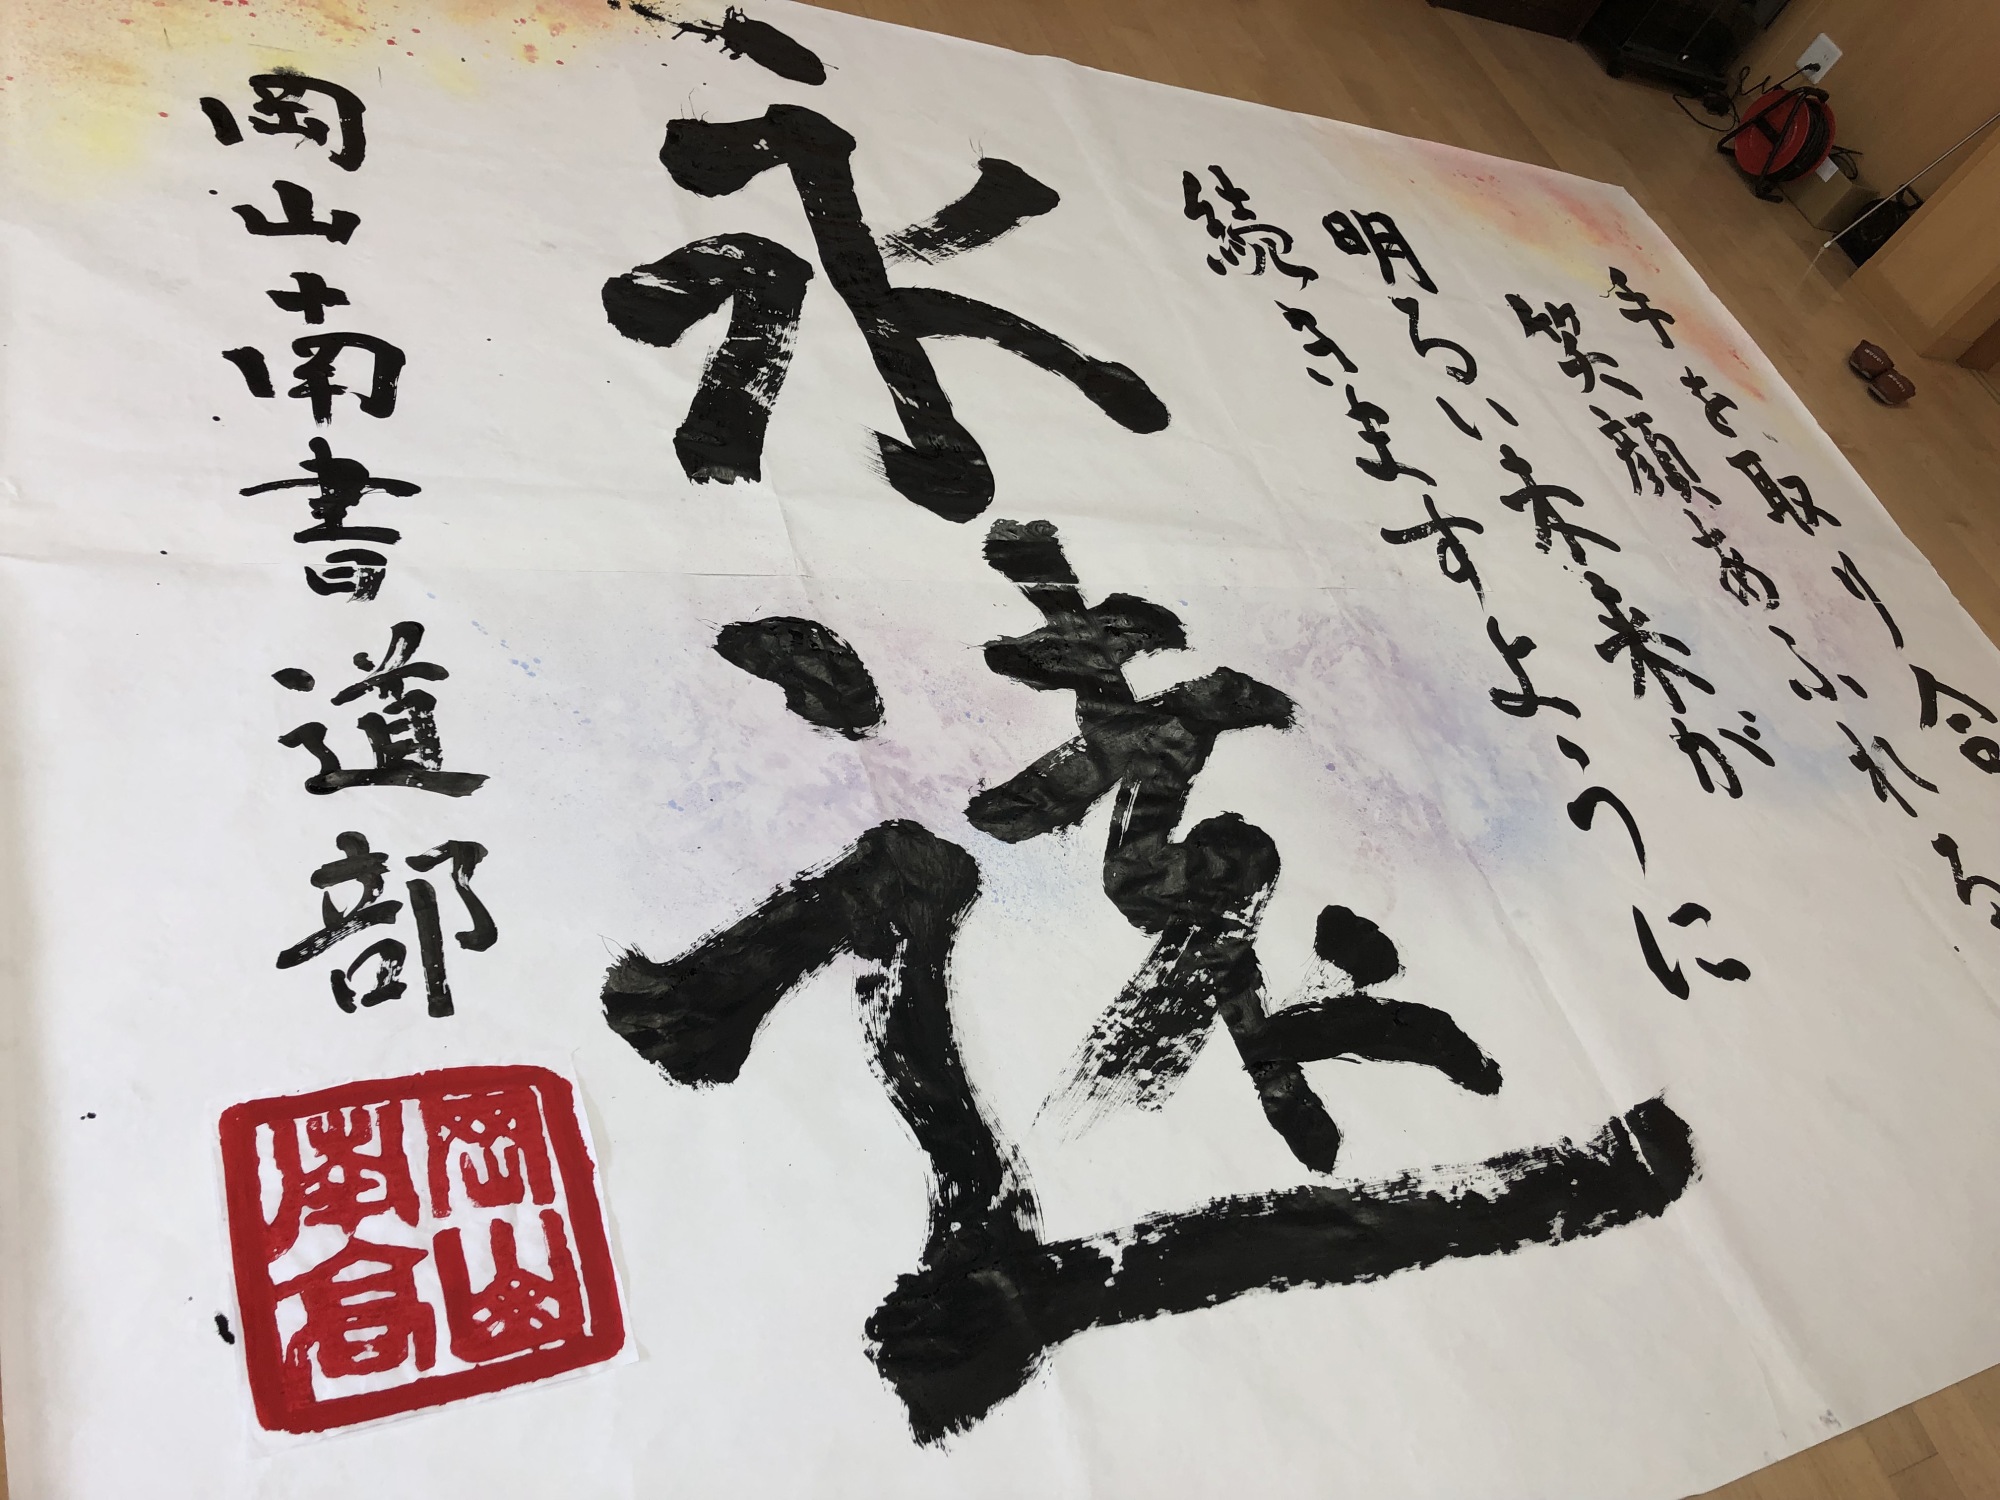 手を取り
笑顔あふれる
明るい未来が
続きますように
永遠
岡山南書道部
岡山
南高